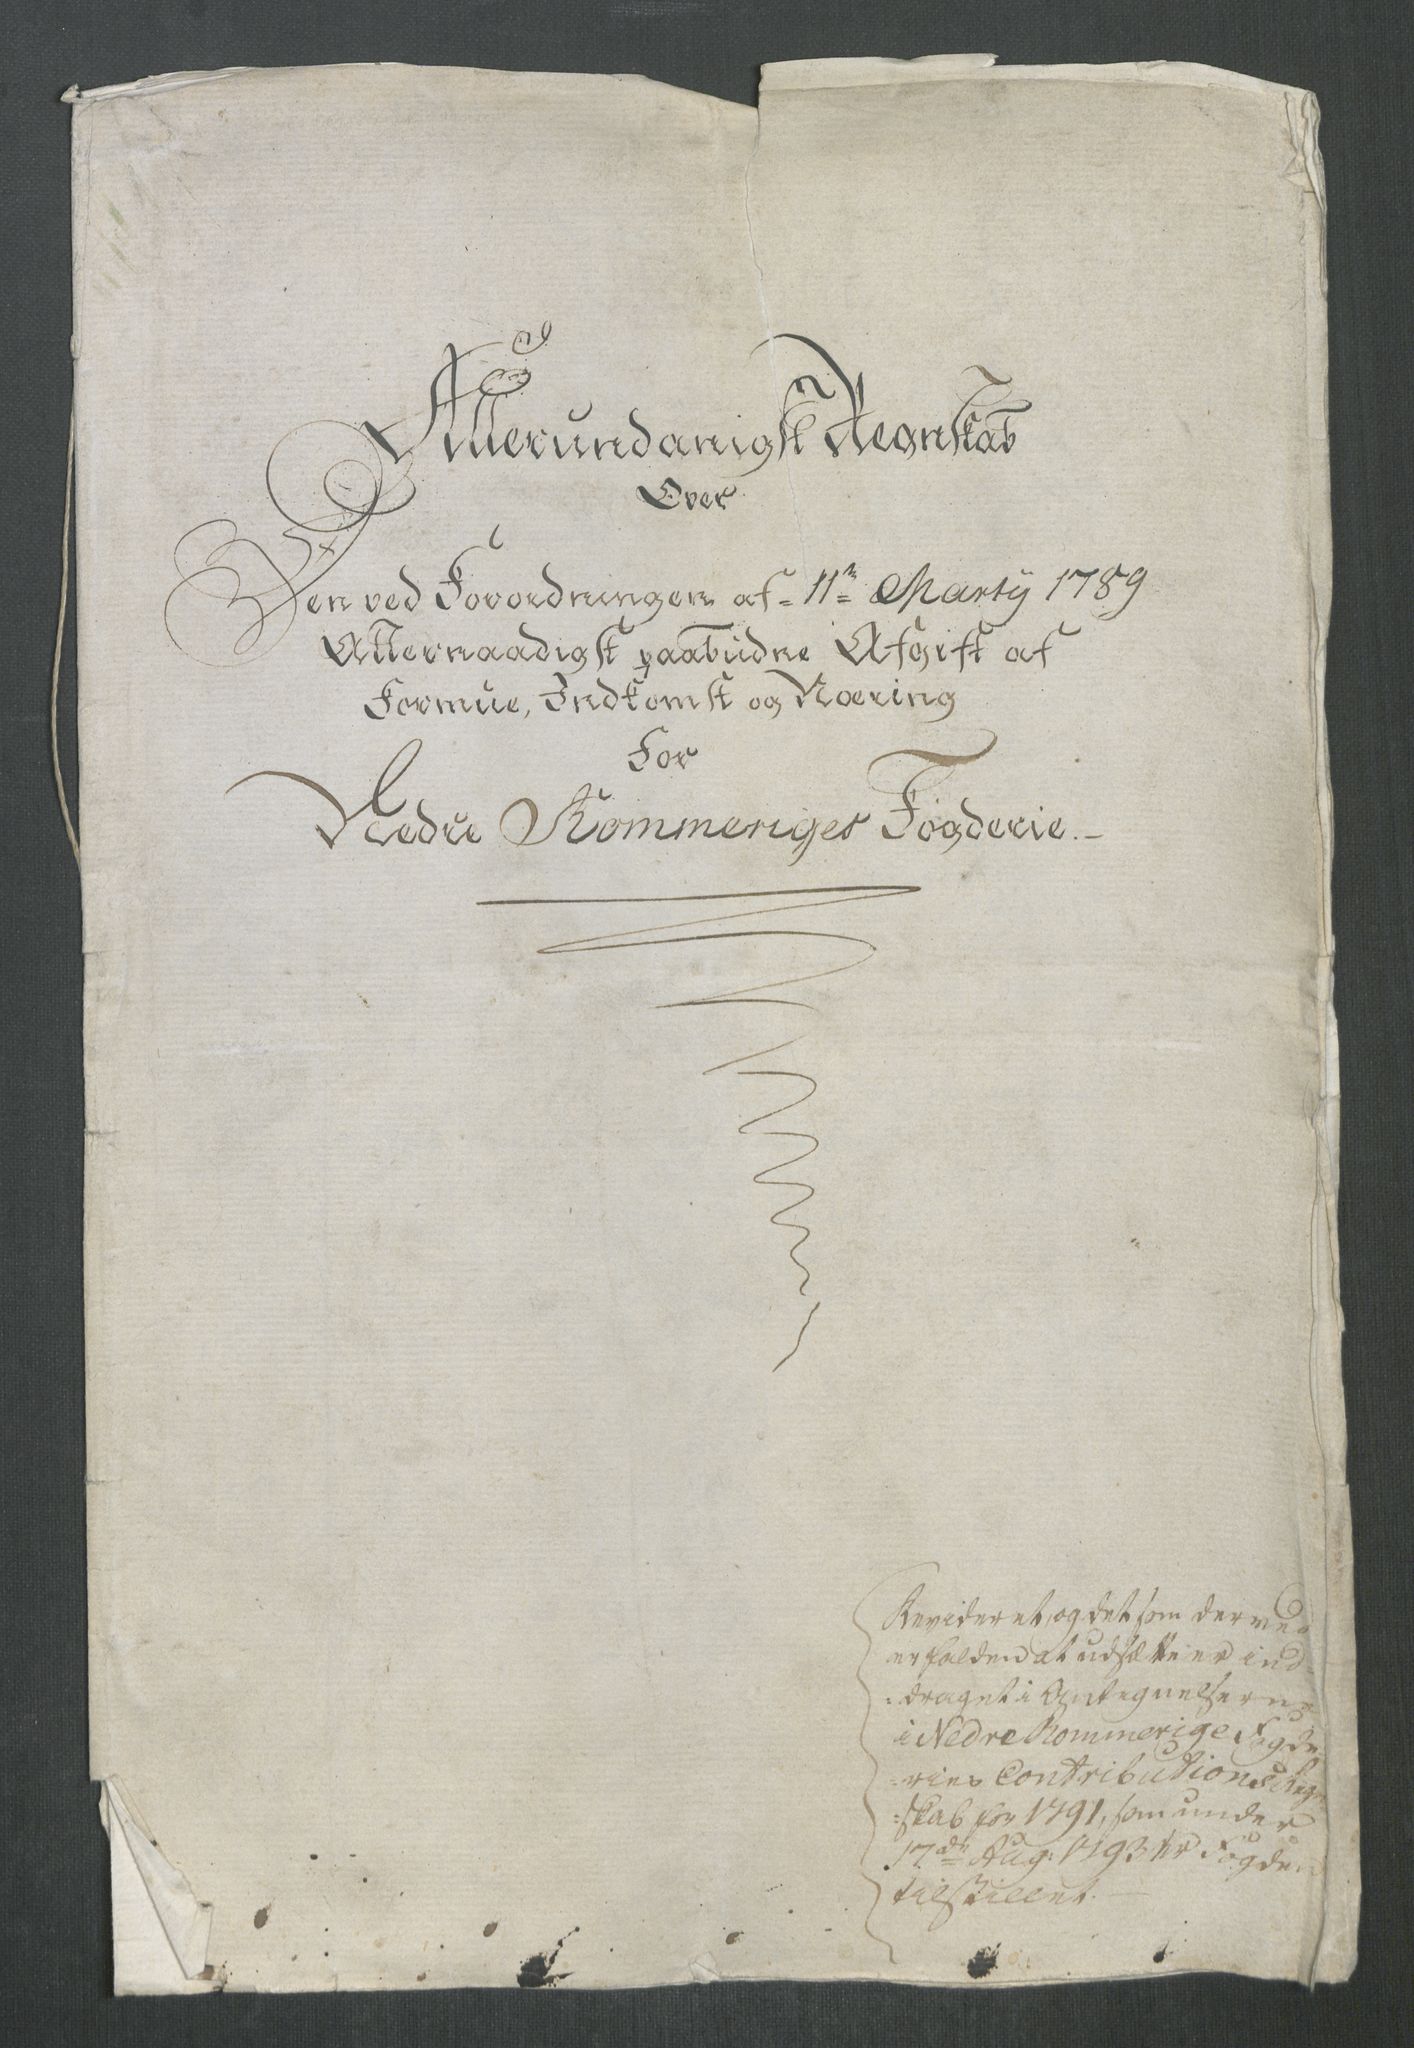 Allerundanigst Regnskab
Over
Den ved Forordningen af 11te Martÿ 1789
Allernaadigst paabudne Afgift af
Formue, Indkomst og Næring
For
Nedre Rommeriges Fogderie.
Revideret, og det som derved
er falden at udsætte er ind=
=draget i Antegnelserne
i Nedre Rommerige Fogde
=ries Contributions Regn
=skab for 1791, som under
17de Aug: 1793 er Fogden
tilstillet.